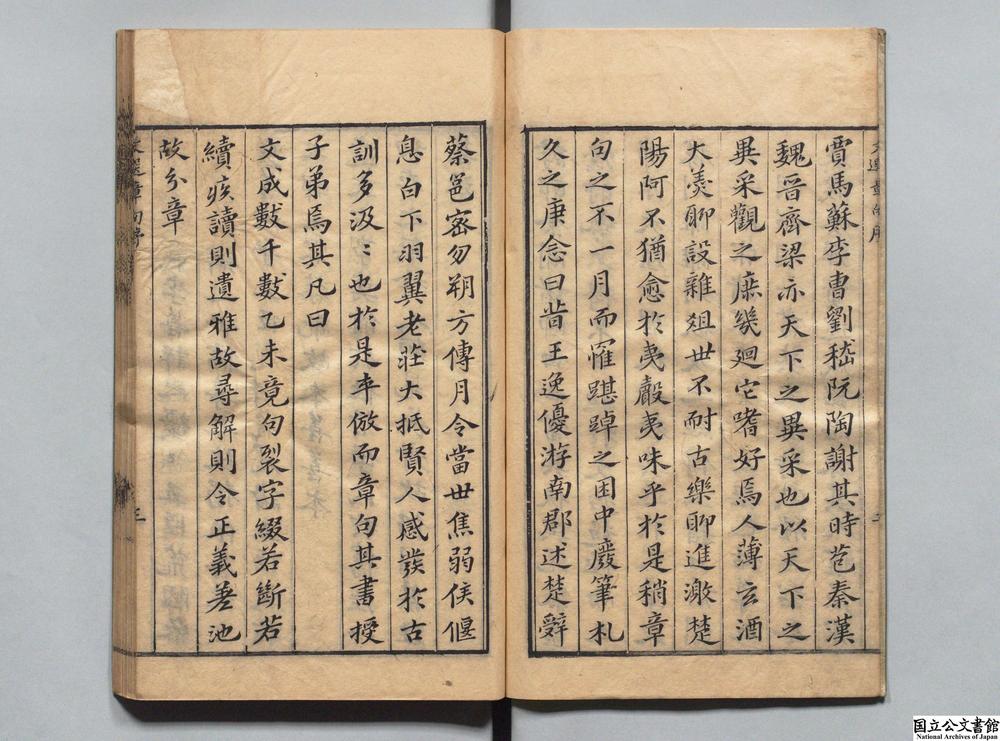 賈馬蘇李曹劉嵇阮陶謝其時苞秦漢
魏晉齊梁亦天下之異采也以天下之
異采觀之庶幾迴它嗜好焉人薄玄酒
大羹聊設雜俎世不耐古樂聊進激楚
陽阿不猶愈於夷嗀夷味乎於是稍章
句之不一月而罹踸踔之困中廢筆札
久之庚念曰昔王逸優游南郡述楚辭
蔡邕密勿朔方傳月令當世焦弱侯偃
息白下羽翼老莊大抵賢人感發於古
訓多汲〻也於是卒倣而章句其書授
子弟焉其凡曰
文成數千數乙未竟句裂字綴若斷若
續疾讀則遺雅故尋解則令正義差池
故分章
文選章句序
三
国立公文書館
National Archives of Japan